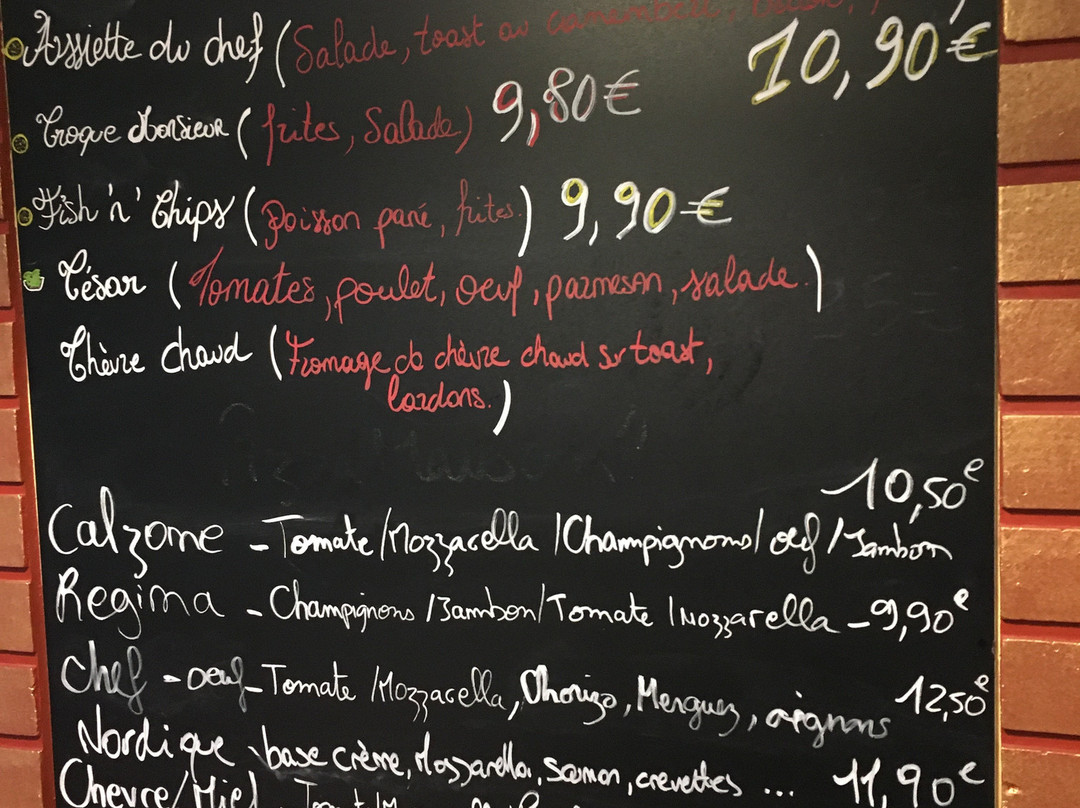 Assiette du chef (Salade, toast au camembert, 10,90€
Croque Monsieur (frites, Salade) 9,80€
Fish 'n' Chips (Poisson pané, frites.) 9,90€
César (Tomates, poulet, oeuf, parmesan, salade.)
Chèvre chaud (Fromage de chèvre chaud sr toast,
lardons.)
10,50€
Calzone - Tomate/Mozzarella/Champignons/oeuf/Jambon
Regina - Champignons/Jambon/Tomate/Mozzarella - 9,90€
Chef - oeuf - Tomate/Mozzarella, Chorizo, Merguez, oignons 12,50€
Nordique - base crème, Mozzarella, Saumon, crevettes ... 11,90€
Chevre/Miel -